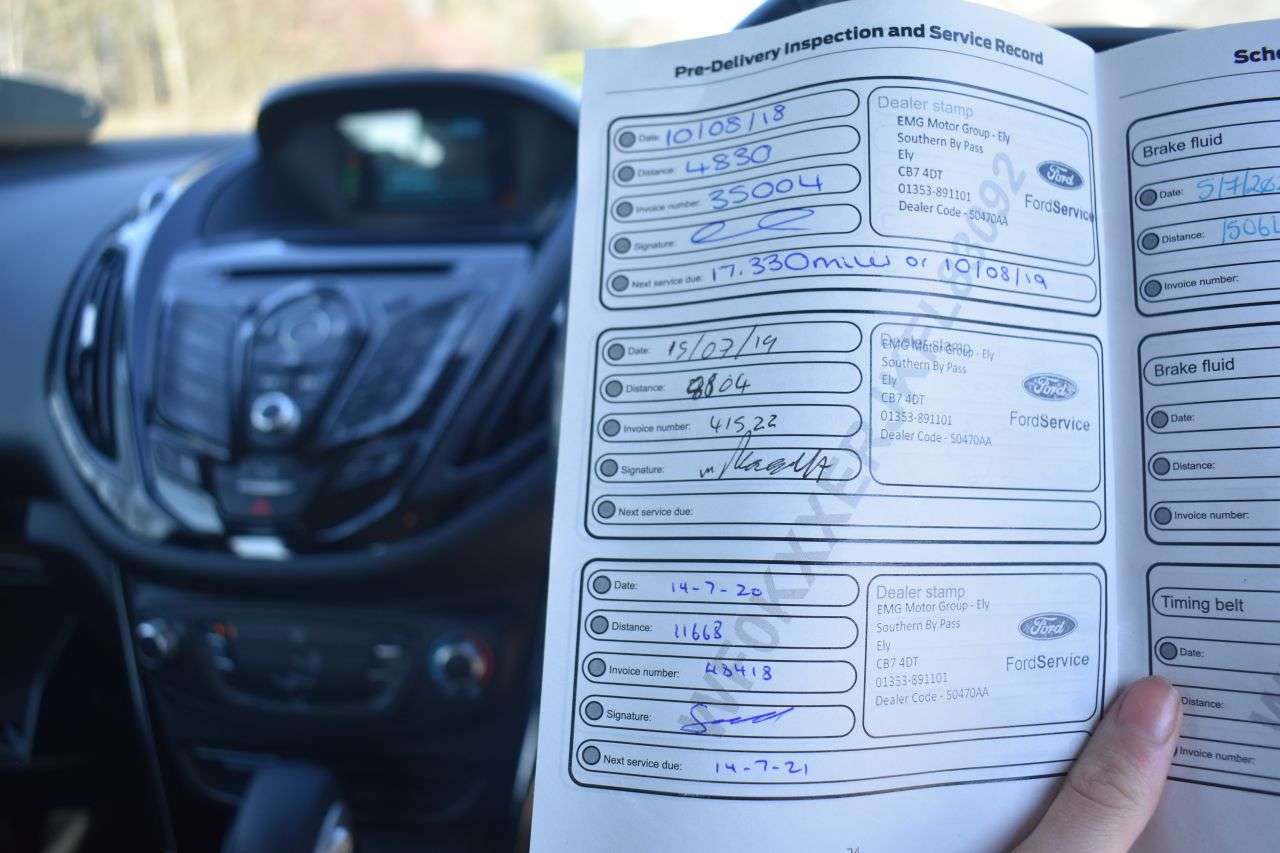 Pre-Delivery Inspection and Service Record
Date: 10/08/18
Distance: 4830
Invoice number: 35004
Signature:
Next service due: 17.330 miles or 10/08/19
Dealer stamp
EMG Motor Group - Ely
Southern By Pass
Ely
CB7 4DT
01353-891101
Dealer Code - 50470AA
Ford
FordService
Date: 15/07/19
Distance: 8804
Invoice number: 41522
Signature:
Next service due:
Dealer stamp
EMG Motor Group - Ely
Southern By Pass
Ely
CB7 4DT
01353-891101
Dealer Code - 50470AA
Ford
FordService
Date: 14-7-20
Distance: 11668
Invoice number: 48418
Signature:
Next service due: 14-7-21
Dealer stamp
EMG Motor Group - Ely
Southern By Pass
Ely
CB7 4DT
01353-891101
Dealer Code - 50470AA
Ford
FordService
Brake fluid
Date: 5/7/202
Distance: 1506
Invoice number:
Brake fluid
Date:
Distance:
Invoice number:
Timing belt
Date:
Distance:
Invoice number: